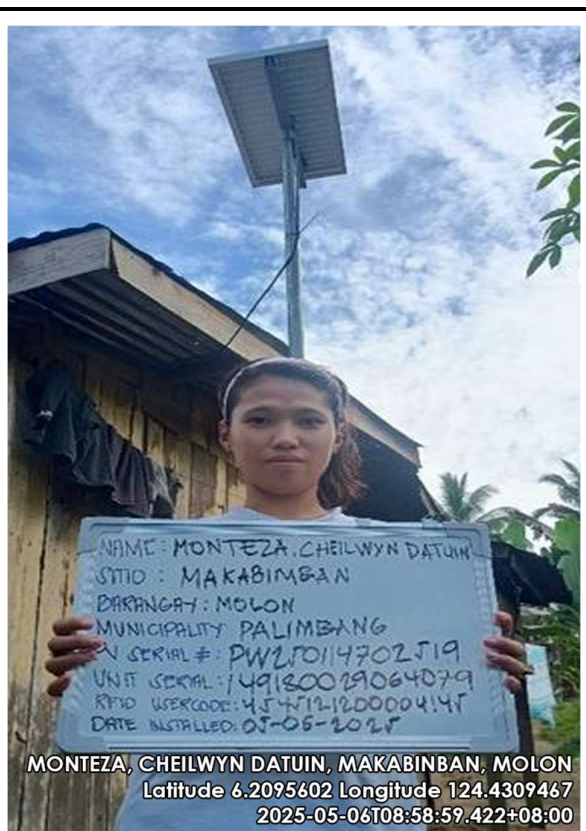 NAME: MONTEZA, CHEILWYN DATUIN
SITIO: MAKABIMBAN
BARANGAY: MOLON
MUNICIPALITY: PALIMBANG
SERIAL #: PW250114702519
UNIT SERIAL: 149180029064079
RFID USERCODE:
DATE INSTALLED: 05-06-2025
MONTEZA, CHEILWYN DATUIN, MAKABINBAN, MOLON
Latitude 6.2095602 Longitude 124.4309467
2025-05-06T08:58:59.422+08:00